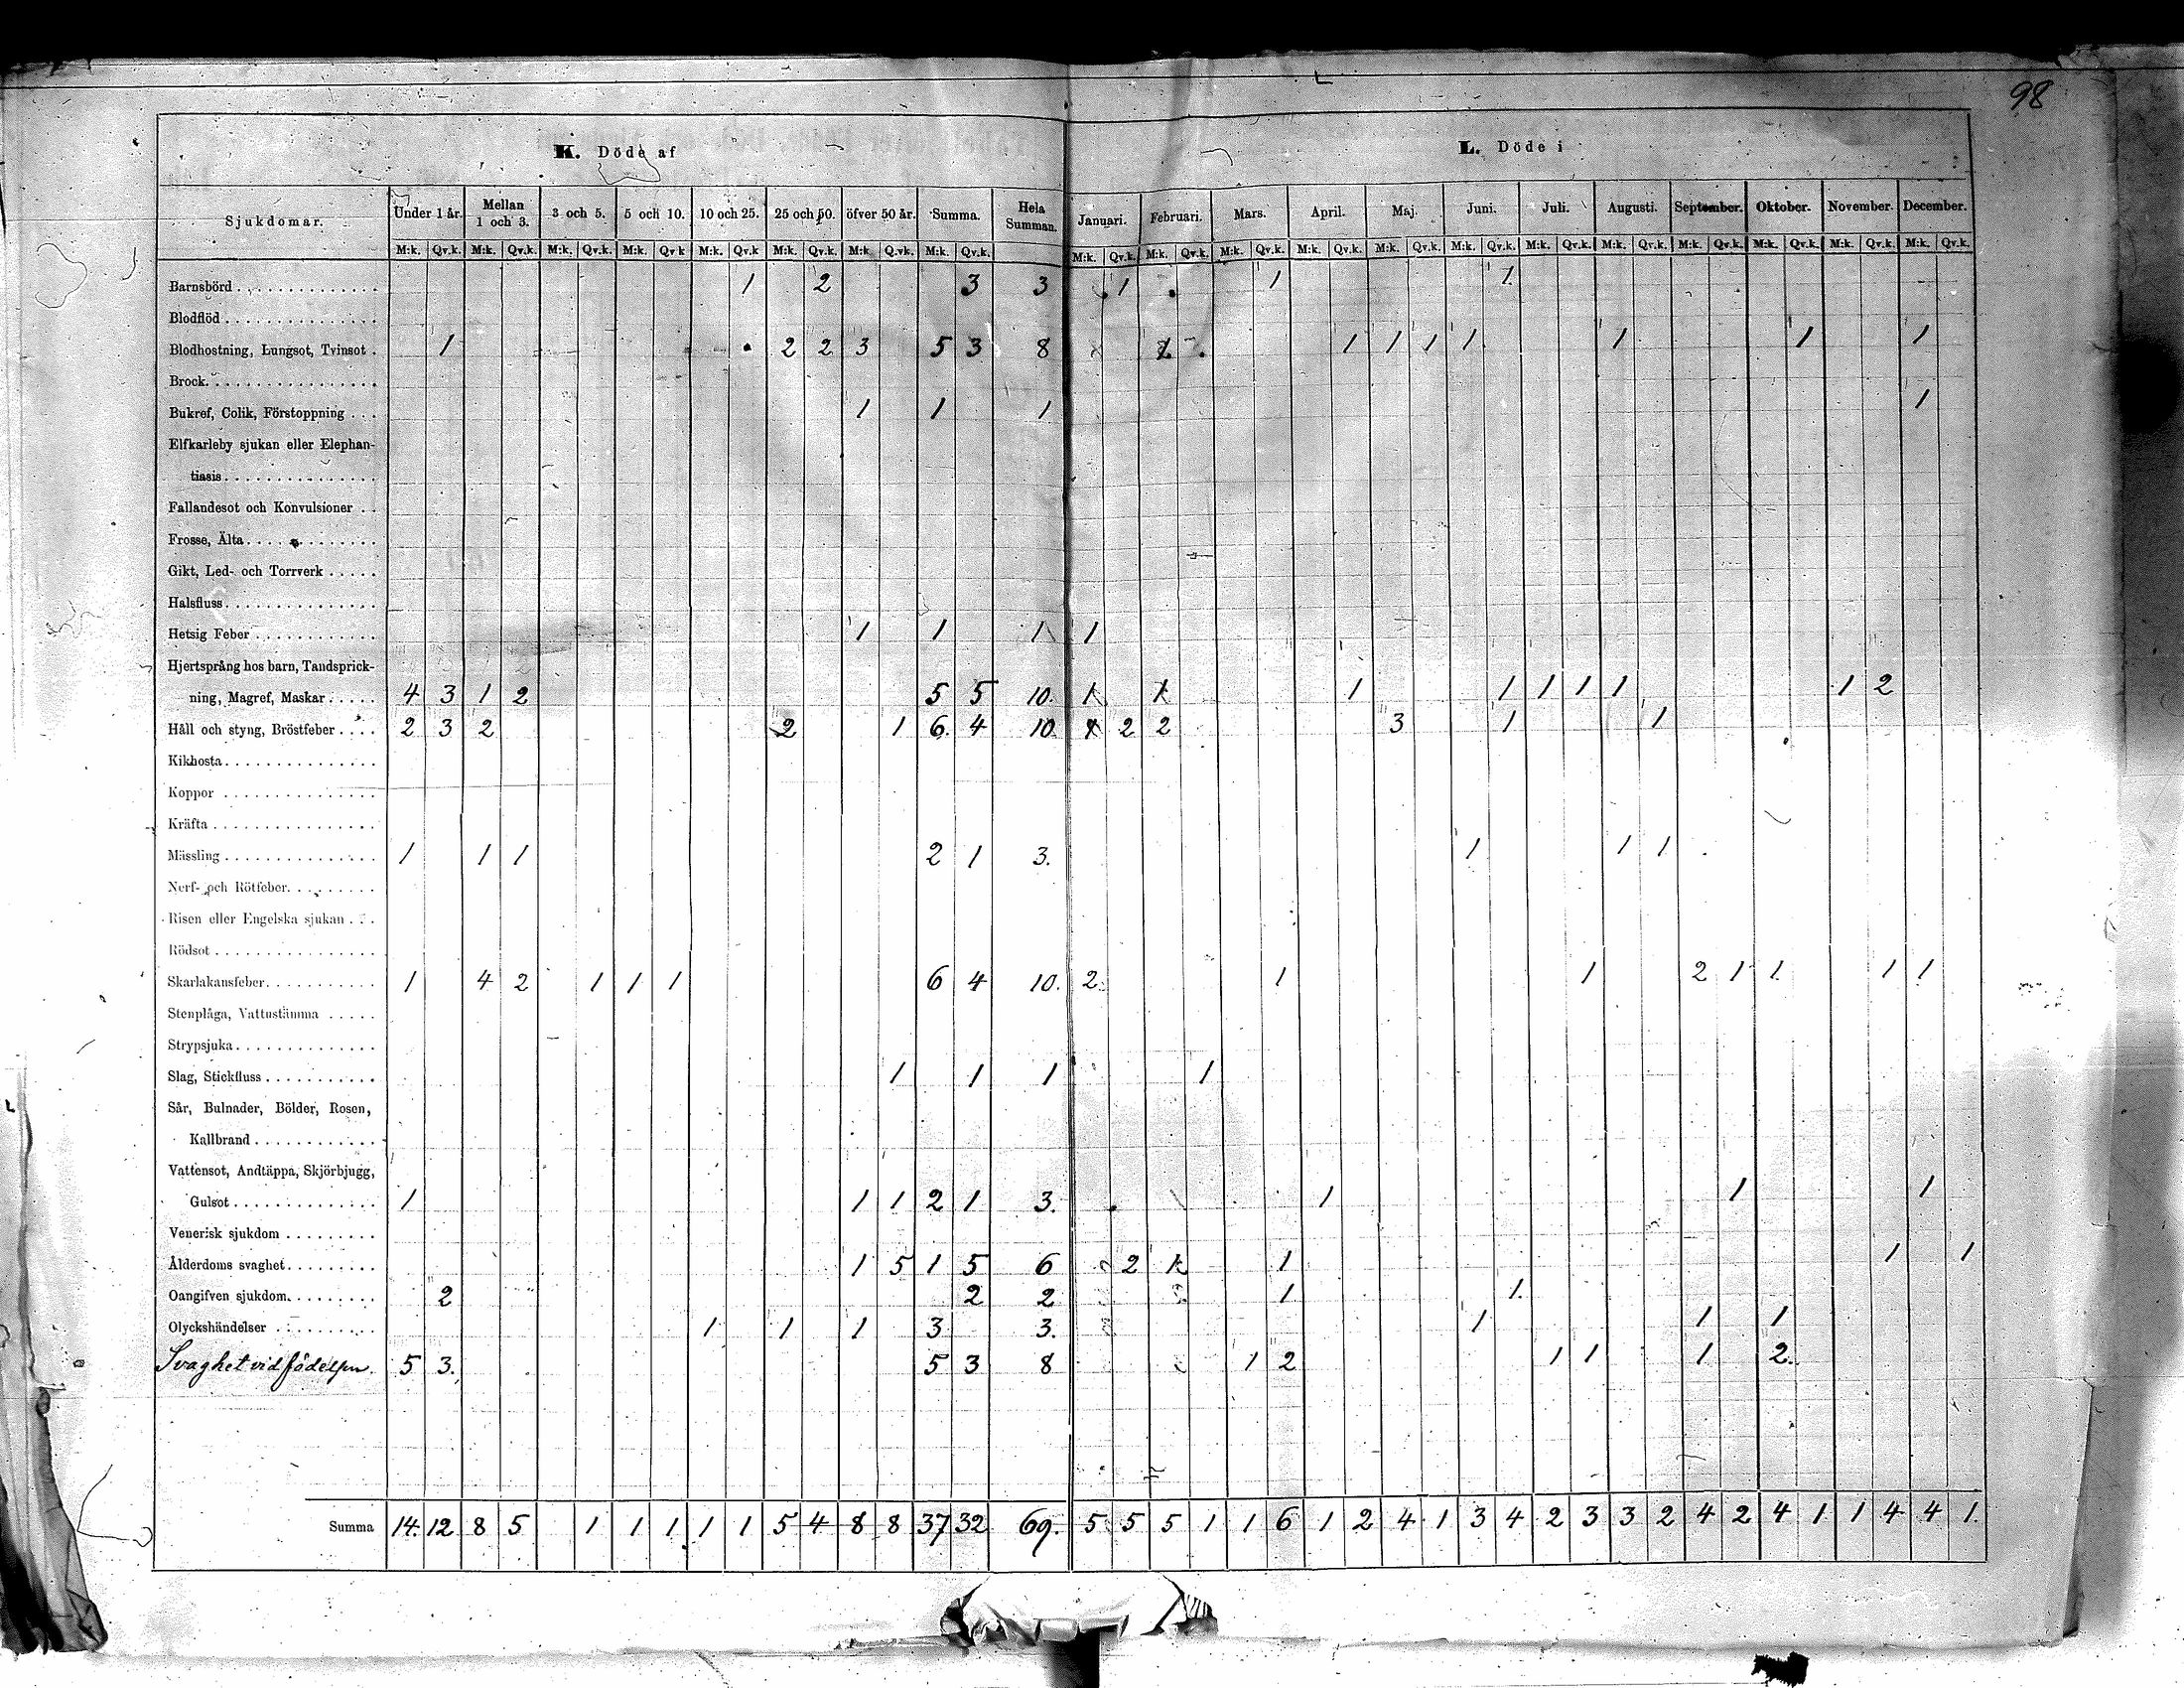 98
K. Döde af
L. Döde i
Sjukdomar. Under 1 år. Mellan 1 och 3. 3 och 5. 5 och 10. 10 och 25. 25 och 50. öfver 50 år. Summa. Hela Summan. Januari. Februari. Mars. April. Maj. Juni. Juli. Augusti. September. Oktober. November. December.
M:k. Qv.k. M:k. Qv.k. M:k. Qv.k. M:k. Qv.k M:k. Qv.k M:k. Qv.k. M:k. Q.vk. M:k. Qv.k. M:k. Qv.k. M:k. Qv.k. M:k. Qv.k. M:k. Qv.k. M:k. Qv.k. M:k. Qv.k. M:k. Qv.k. M:k. Qv.k. M:k. Qv.k. M:k. Qv.k. M:k. Qv.k. M:k. Qv.k.
Barnsbörd 1 2 3 3 1 1 1
Blodflöd
Blodhostning, Lungsot, Tvinsot 1 2 2 3 5 3 8 1 1 1 1 1 1 1
Brock
Bukref, Colik, Förstoppning 1 1 1 1
Elfkarleby sjukan eller Elephan-
tiasis
Fallandesot och Konvulsioner
Frosse, Älta
Gikt, Led- och Torrverk
Halsfluss
Hetsig Feber 1 1 1 1
Hjertsprång hos barn, Tandsprick-
ning, Magref, Maskar 4 3 1 2 5 5 10. 1 1 1 1 1 1 1 1 2
Håll och styng, Bröstfeber 2 3 2 2 1 6. 4 10. 2 2 3 1 1
Kikhosta
Koppor
Kräfta
Mässling 1 1 1 2 1 3. 1 1 1
Nerf- och Rötfeber
Risen eller Engelska sjukan
Rödsot
Skarlakansfeber 1 4 2 1 1 1 6 4 10. 2 1 1 2 1 1 1 1
Stenplåga, Vattustämma
Strypsjuka
Slag, Stickfluss 1 1 1 1
Sår, Bulnader, Bölder, Rosen,
Kallbrand
Vattensot, Andtäppa, Skjörbjugg,
Gulsot 1 1 1 2 1 3. 1 1 1
Venerisk sjukdom
Ålderdoms svaghet 1 5 1 5 6 2 1 1 1 1
Oangifven sjukdom 2 2 2 1 1
Olyckshändelser 1 1 1 3 3. 1 1 1
Svaghet vid födelsen. 5 3. 5 3 8 1 2 1 1 1 2
Summa 14. 12 8 5 1 1 1 1 1 5 4 8 8 37 32 69. 5 5 5 1 1 6 1 2 4 1 3 4 2 3 3 2 4 2 4 1 1 4 4 1